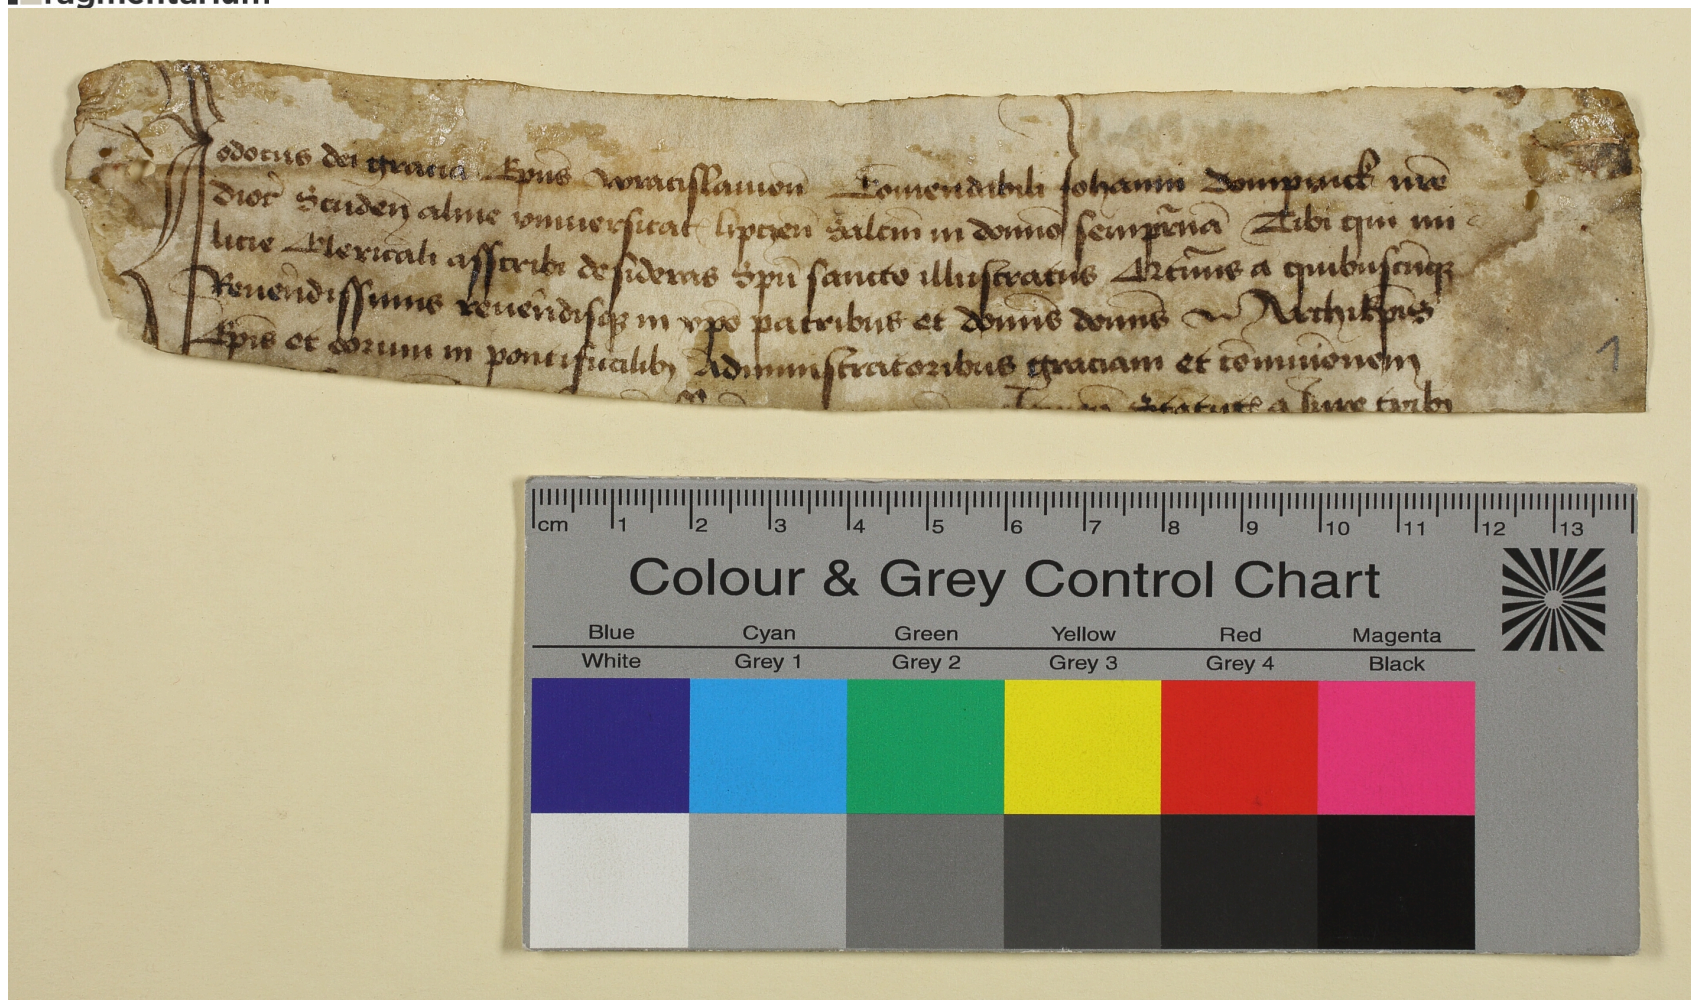 fragmentarium
Jodocus dei gracia Epus wratislauien Comendibili Johanni Dompnick nre
dioc Studen alme vniuersitat liptzen Saltm in domno semprna Tibi qui mi
licie Clericali asscribi desideras Spu sancto illustratus Vt a quibuscuqz
Reuerendissimis reuerendisqz in xpo patribus et domis domis Archiepis
Epis et eorum in pontificalibz Administratoribus graciam et comunionem
Statut a Jure
1
cm 1 2 3 4 5 6 7 8 9 10 11 12 13
Colour & Grey Control Chart
Blue Cyan Green Yellow Red Magenta
White Grey 1 Grey 2 Grey 3 Grey 4 Black